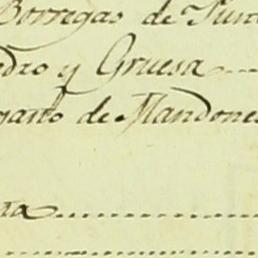 Borregas de Pun
edro y Gruesa
gasto de Mandones
na